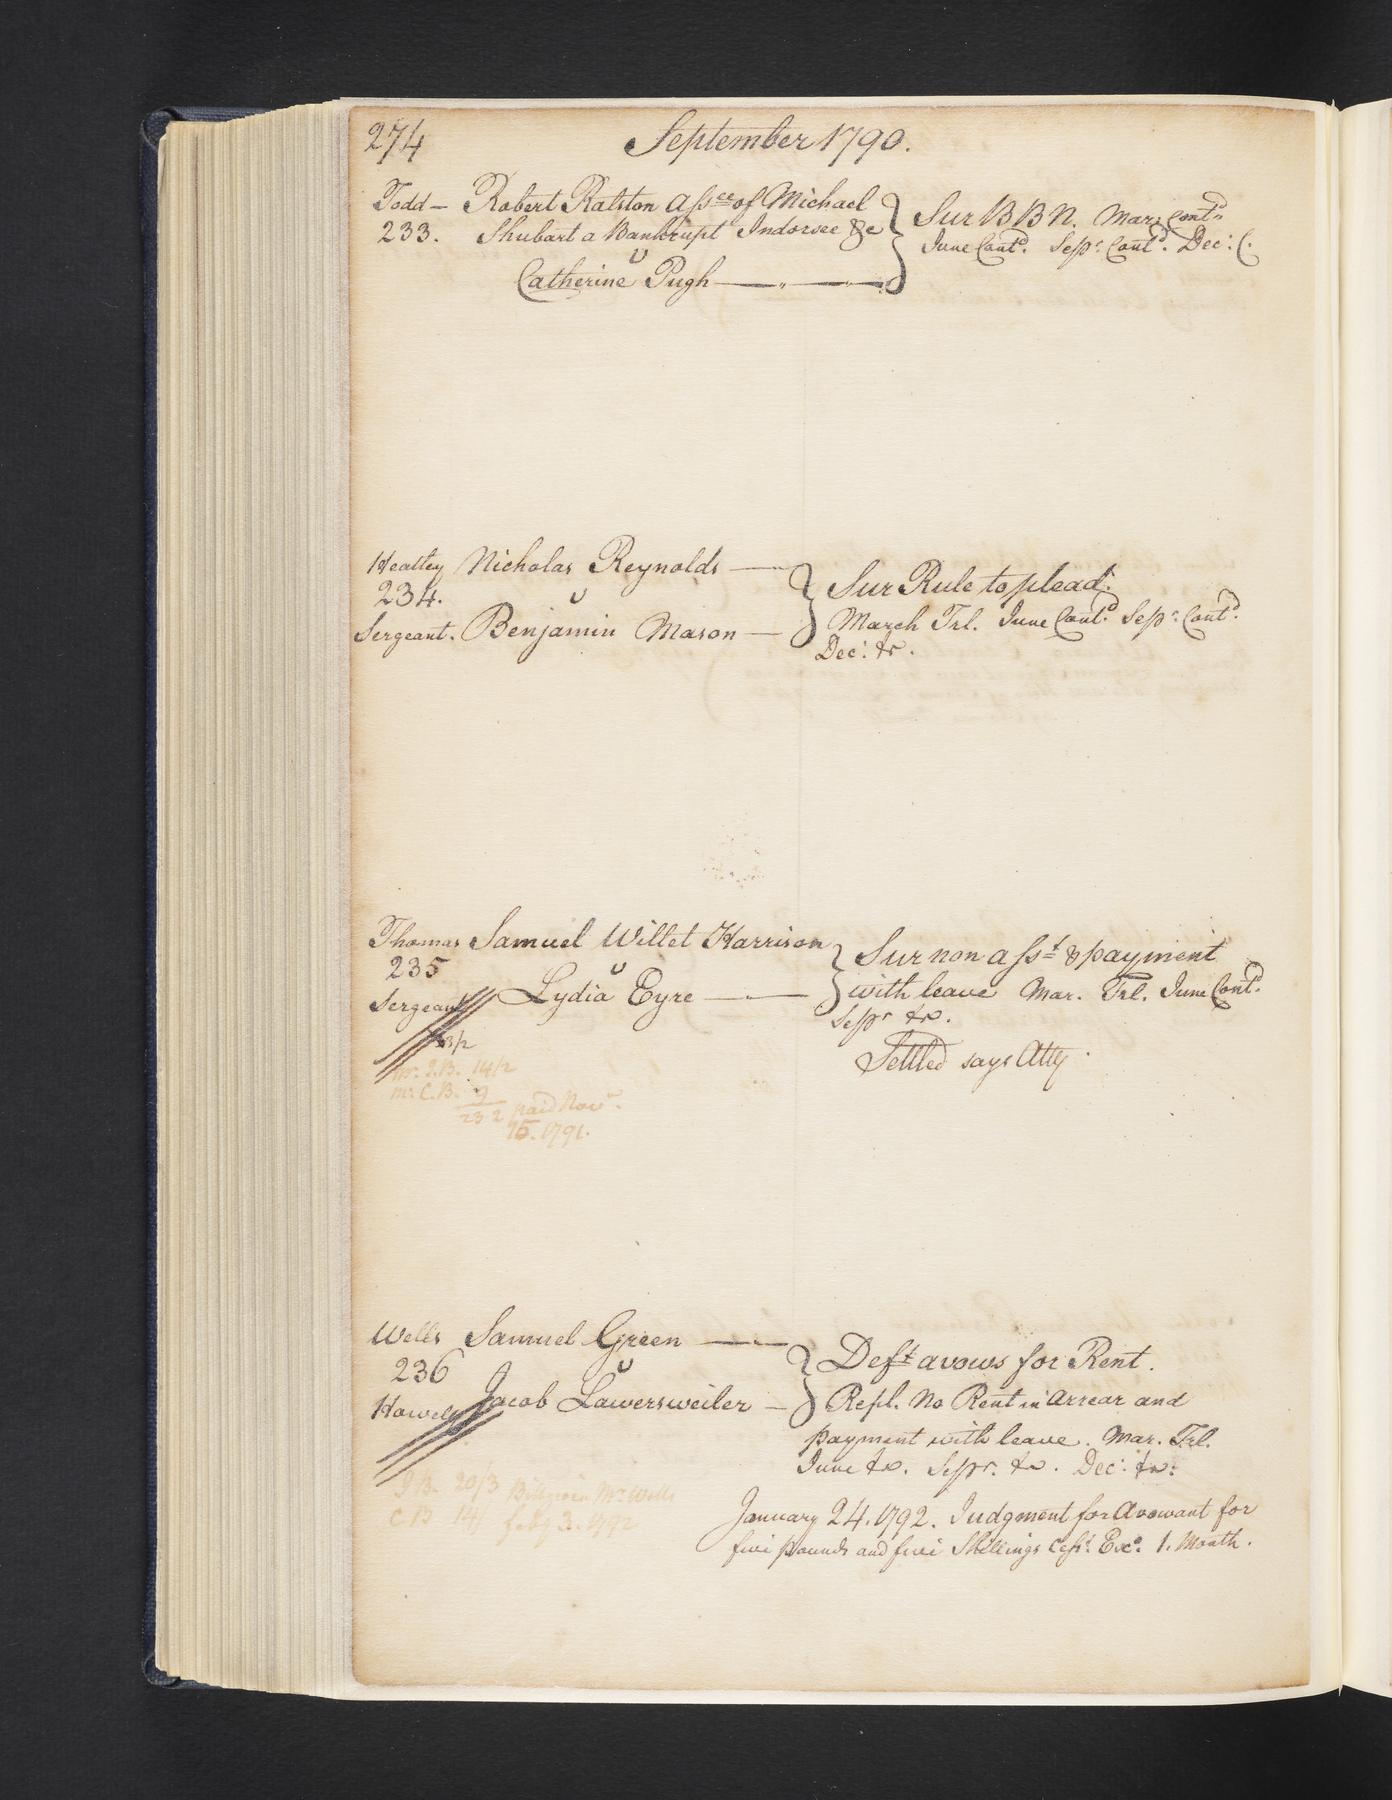 274 September 1790.
Todd — Robert Ralston assee of Michael
233. Shubart a Bankrupt Indorsee &c
v
Catherine Pugh
Sur BBN. Mar: Contd
June Contd. Sepr. Contd. Dec: C.
Heatley Nicholas Reynolds
234. v
Sergeant. Benjamin Mason
Sur Rule to plead.
March Trl. June Contd. Sepr. Contd.
Dec: &c.
Thomas Samuel Willet Harrison
235 v
Sergeant Lydia Eyre
23/2
Sur non asst & payment
with leave Mar. Trl. June Contd.
Sepr &c.
Settled says Atty.
Mr. I.B. 14/2
Mr. C.B. 9
23 2 paid Novr.
15. 1791.
Wells Samuel Green
236 v
Howell Jacob Lawersweiler
Deft avows for Rent.
Repl. No Rent in arrear and
payment with leave. Mar. Trl.
June &c. Sepr. &c. Dec: &c:
I B. 20/3 Mr Wells
C B 14/ feby 3. 1792
January 24. 1792. Judgment for Avowant for
five pounds and five Shillings Exo. 1. Month.